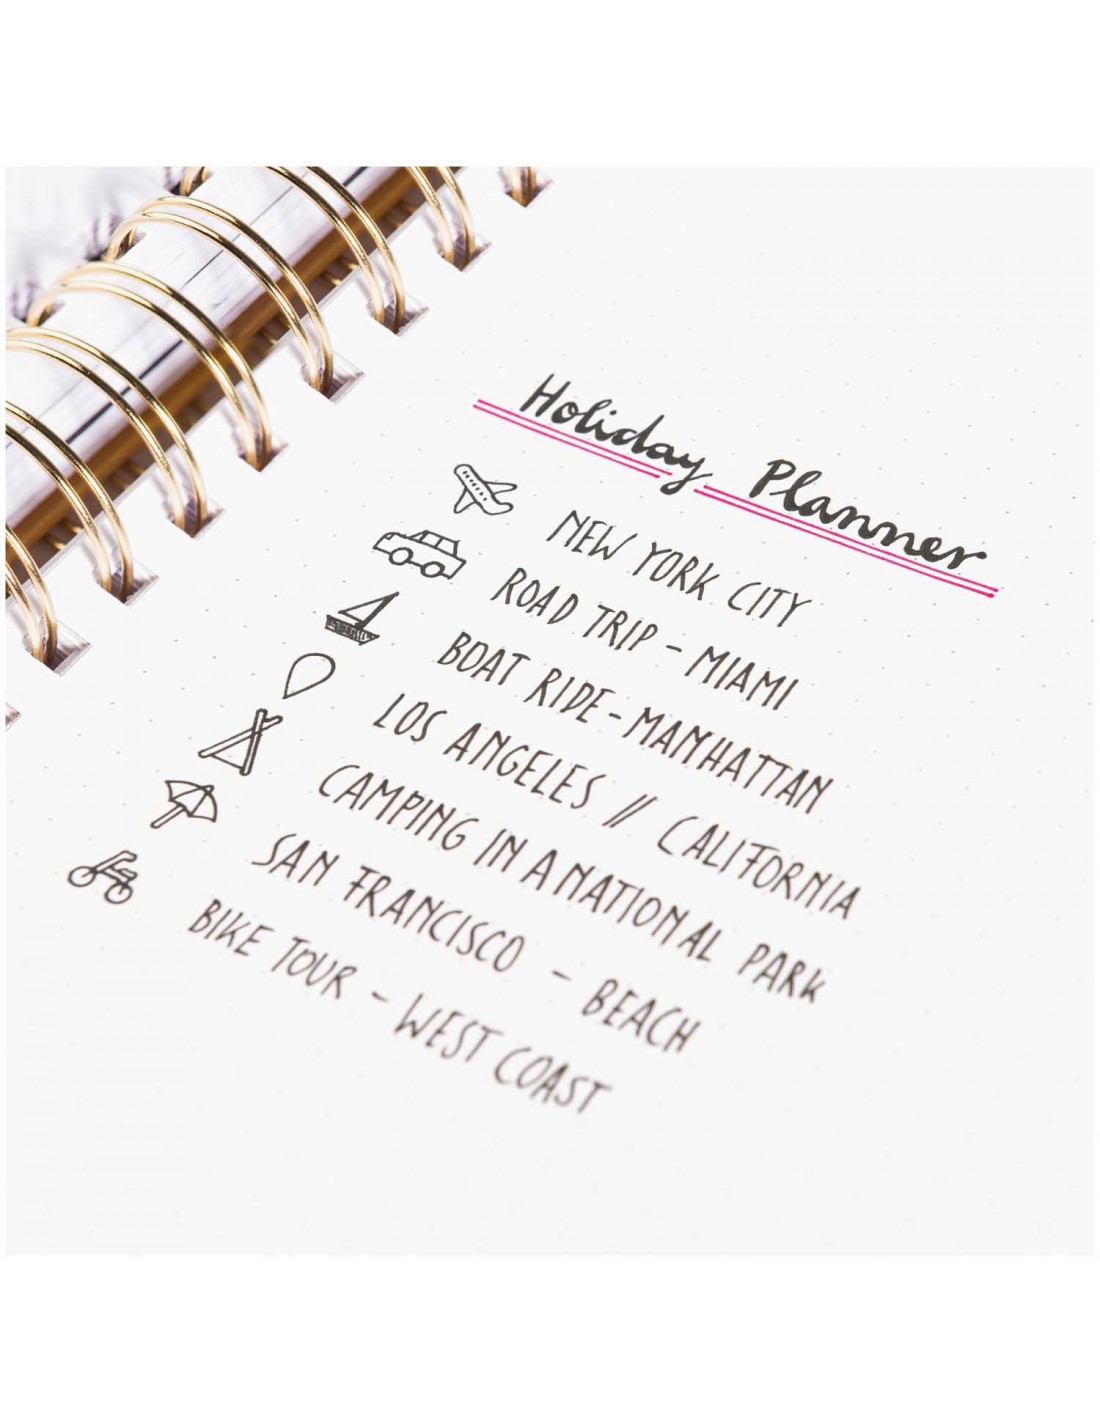 Holiday Planner
NEW YORK CITY
ROAD TRIP - MIAMI
BOAT RIDE - MANHATTAN
LOS ANGELES // CALIFORNIA
CAMPING IN A NATIONAL PARK
SAN FRANCISCO - BEACH
BIKE TOUR - WEST COAST